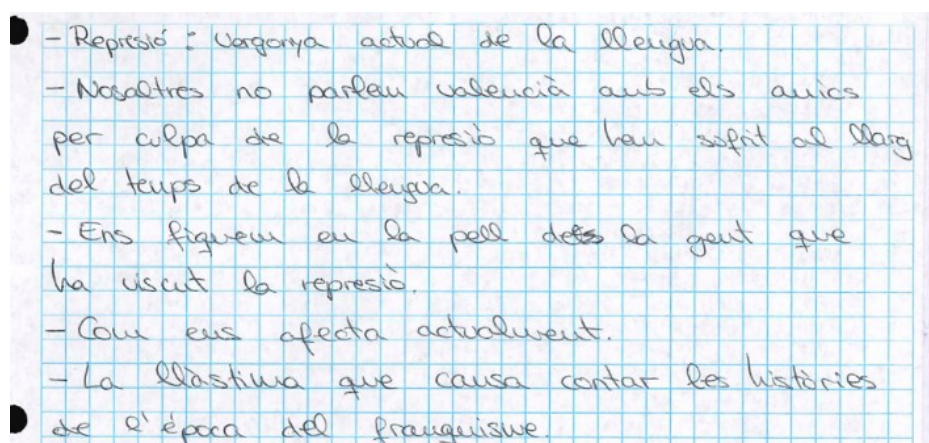 - Represió: Vergonya actual de la llengua.
- Nosaltres no parlem valencià amb els amics
per culpa de la represió que hem sofrit al llarg
del temps de la llengua.
- Ens fiquem en la pell de la gent que
ha viscut la represiò.
- Com ens afecta actualment.
- La llàstima que causa contar les històries
de l'época del franquisme.